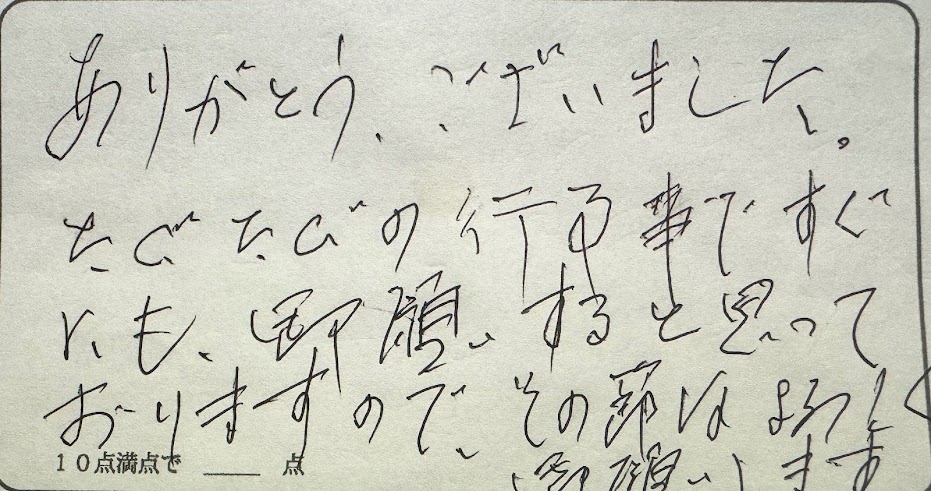 ありがとうございました。
たびたびの行る事ですぐ
にも、御願いすると思って
おりますので、その節はよろしく
御願いします
10点満点で ___ 点